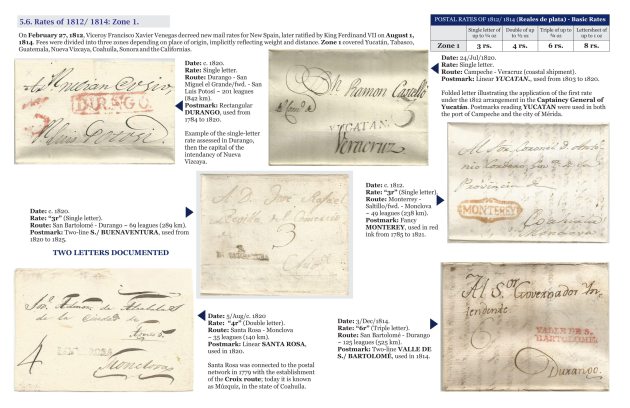 5.6. Rates of 1812/ 1814: Zone 1.
On February 27, 1812, Viceroy Francisco Xavier Venegas decreed new mail rates for New Spain, later ratified by King Ferdinand VII on August 1,
1814. Fees were divided into three zones depending on place of origin, implicitly reflecting weight and distance. Zone 1 covered Yucatán, Tabasco,
Guatemala, Nueva Vizcaya, Coahuila, Sonora and the Californias.
POSTAL RATES OF 1812/ 1814 (Reales de plata) - Basic Rates
Single letter of up to ¼ oz
Double of up to ½ oz
Triple of up to ¾ oz
Lettersheet of up to 1 oz
Zone 1 3 rs. 4 rs. 6 rs. 8 rs.
DURANGO
Luis Potosi
Date: c. 1820.
Rate: Single letter.
Route: Durango - San
Miguel el Grande/fwd. - San
Luis Potosí ~ 201 leagues
(842 km).
Postmark: Rectangular
DURANGO, used from
1784 to 1820.
Example of the single-letter
rate assessed in Durango,
then the capital of the
intendancy of Nueva
Vizcaya.
Ramon
YUCATAN.
Veracruz
Date: 24/Jul/1820.
Rate: Single letter.
Route: Campeche - Veracruz (coastal shipment).
Postmark: Linear YUCATAN., used from 1803 to 1820.
Folded letter illustrating the application of the first rate
under the 1812 arrangement in the Captaincy General of
Yucatán. Postmarks reading YUCATAN were used in both
the port of Campeche and the city of Mérida.
Date: c. 1820.
Rate: "3r" (Single letter).
Route: San Bartolomé - Durango ~ 69 leagues (289 km).
Postmark: Two-line S./ BUENAVENTURA, used from
1820 to 1825.
TWO LETTERS DOCUMENTED
3
Date: c. 1812.
Rate: "3r" (Single letter).
Route: Monterrey -
Saltillo/fwd. - Monclova
~ 49 leagues (238 km).
Postmark: Fancy
MONTEREY, used in red
ink from 1785 to 1821.
MONTEREY
4
SANTA ROSA
Monclova
Date: 5/Aug/c. 1820
Rate: "4r" (Double letter).
Route: Santa Rosa - Monclova
~ 35 leagues (140 km).
Postmark: Linear SANTA ROSA,
used in 1820.
Santa Rosa was connected to the postal
network in 1779 with the establishment
of the Croix route; today it is known
as Múzquiz, in the state of Coahuila.
Date: 3/Dec/1814.
Rate: "6r" (Triple letter).
Route: San Bartolomé - Durango
~ 125 leagues (525 km).
Postmark: Two-line VALLE DE
S./ BARTOLOMÉ, used in 1814.
Al S.or Governador In
tendente
VALLE DE S.
BARTOLOME.
Durango.